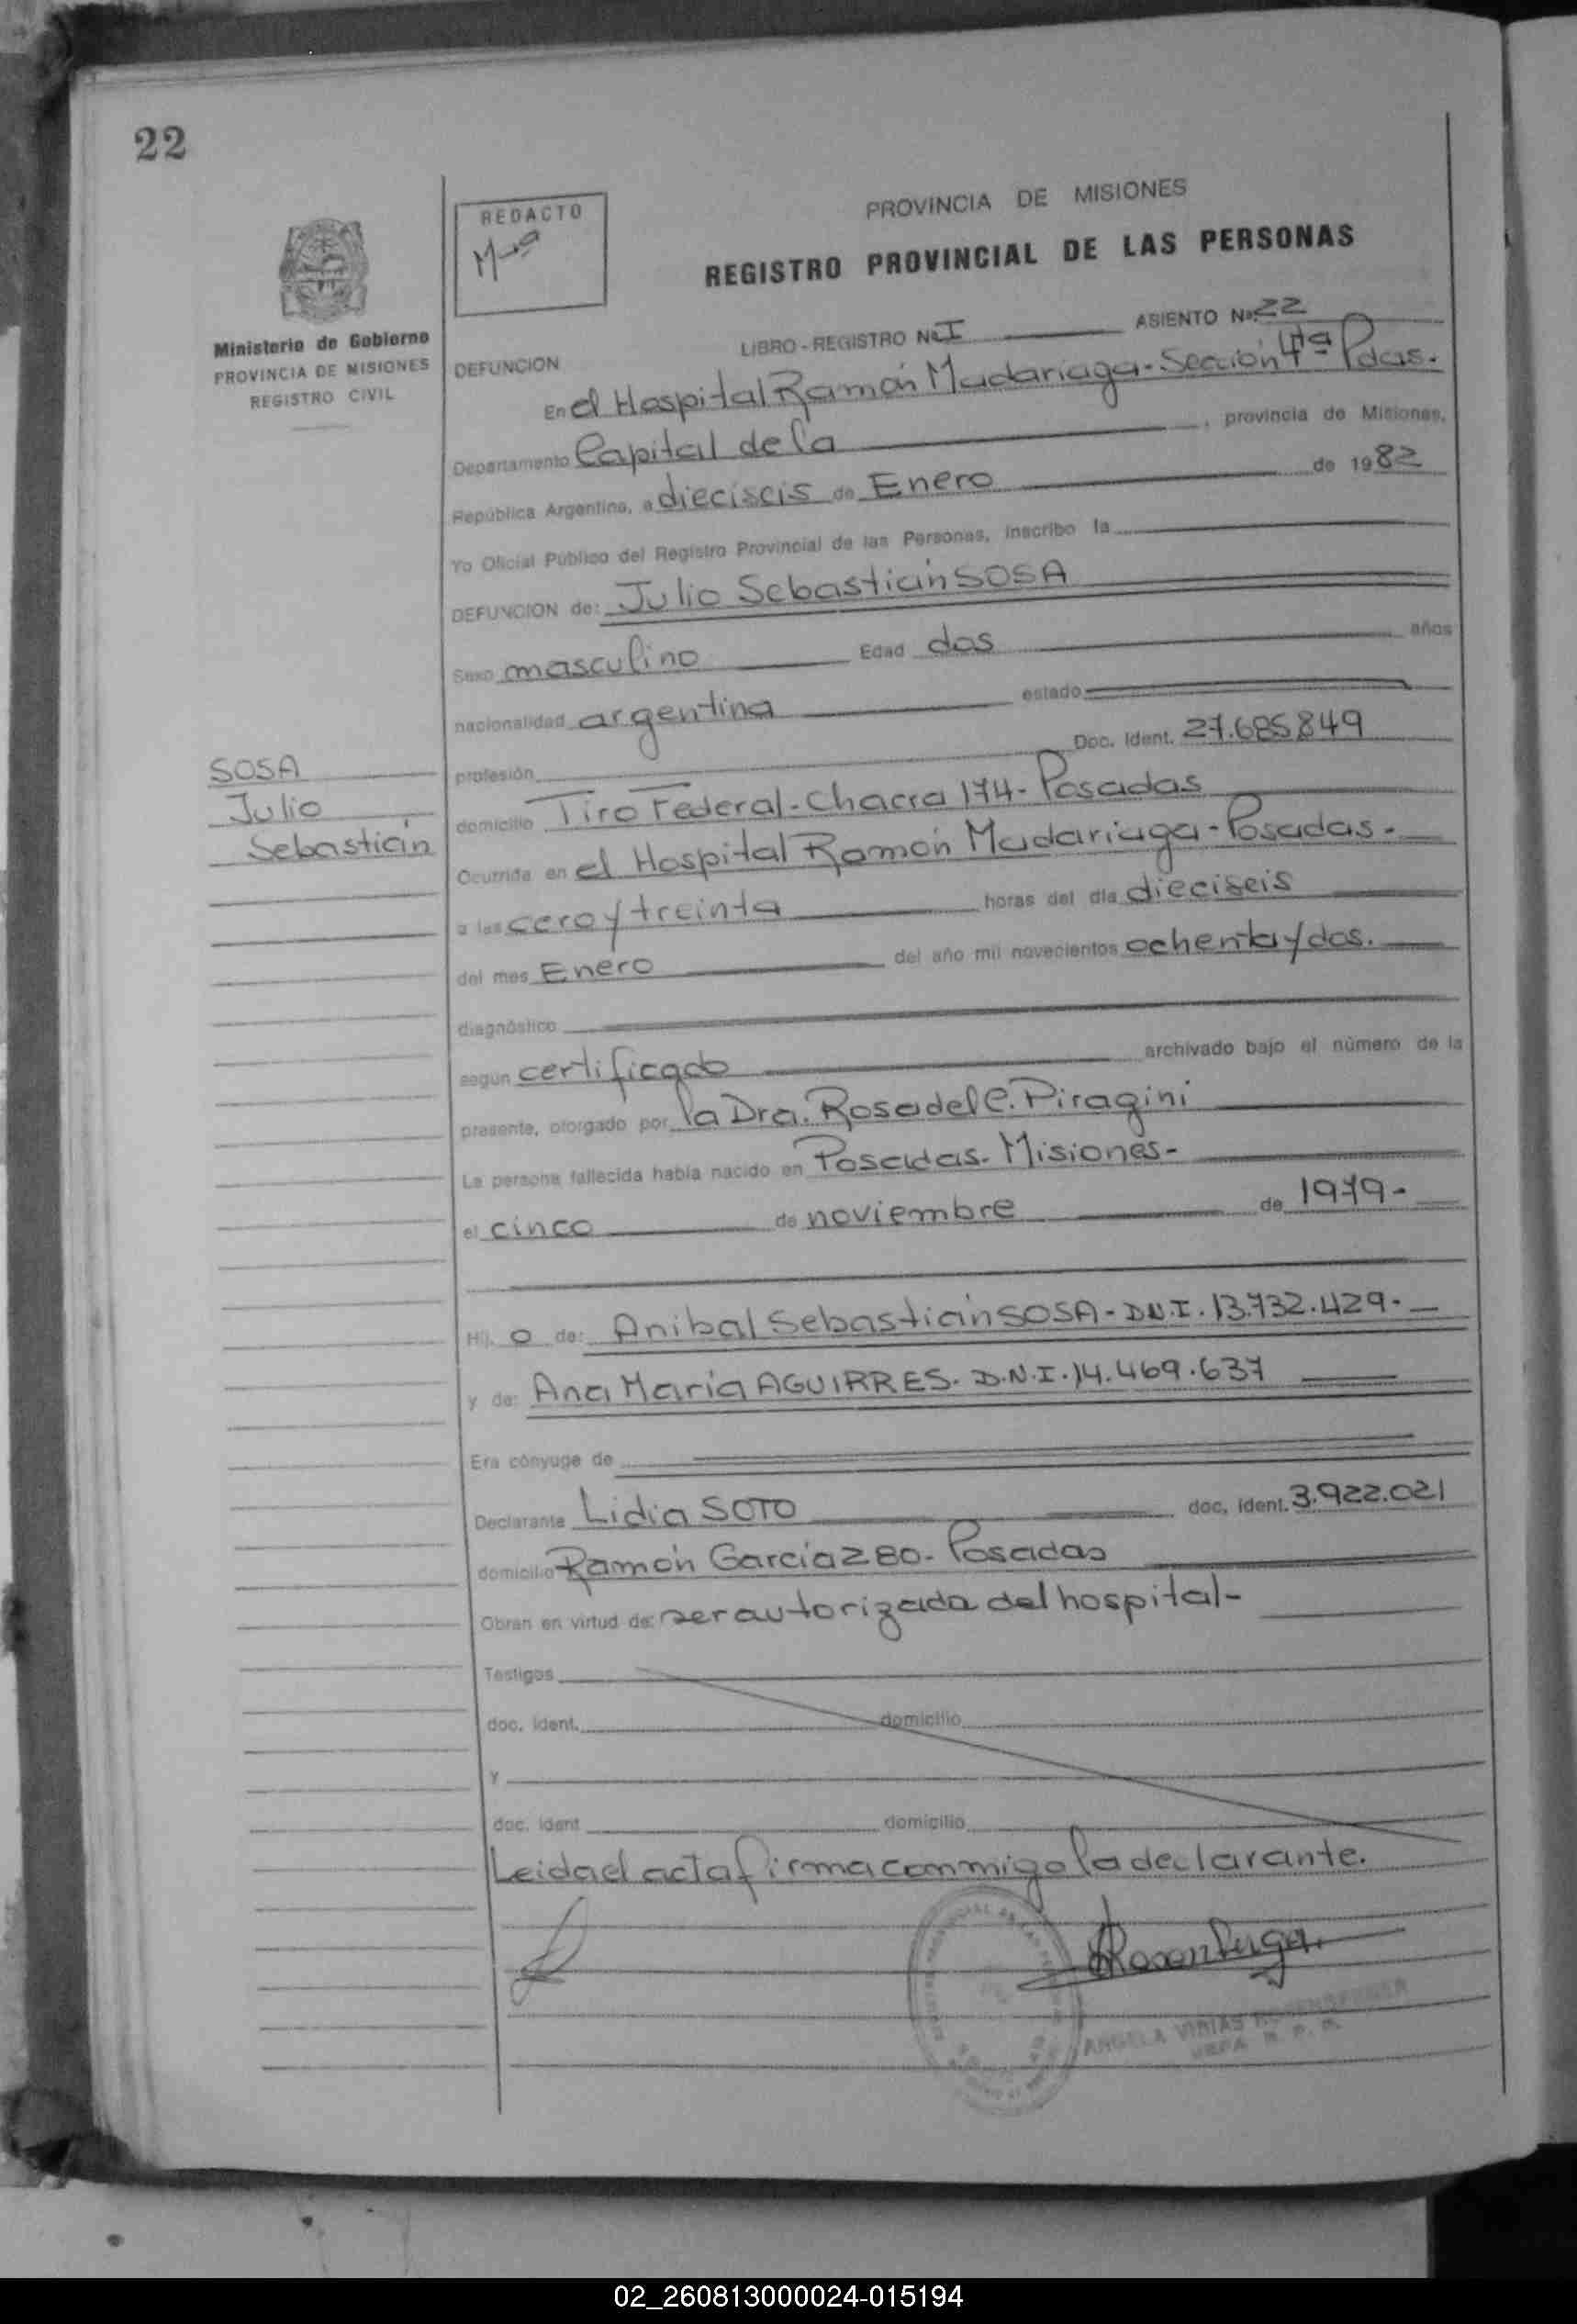 22
REDACTO
PROVINCIA DE MISIONES
REGISTRO PROVINCIAL DE LAS PERSONAS
Ministerio de Gobierno
PROVINCIA DE MISIONES
REGISTRO CIVIL
LIBRO-REGISTRO Nº I ASIENTO Nº 22
DEFUNCION
En el Hospital Ramón Madariaga - Sección 4ta Pdas.
Departamento Capital de la , provincia de Misiones,
República Argentina, a dieciseis de Enero de 1982
Yo Oficial Público del Registro Provincial de las Personas, inscribo la
DEFUNCION de: Julio Sebastián SOSA
Sexo masculino Edad dos años
nacionalidad argentina estado
profesión Doc. Ident. 27.685.849
SOSA
Julio
Sebastián
domicilio Tiro Federal - Chacra 174 - Posadas
Ocurrida en el Hospital Ramón Madariaga - Posadas.
a las cero y treinta horas del día dieciseis
del mes Enero del año mil novecientos ochenta y dos.
diagnóstico
según certificado archivado bajo el número de la
presente, otorgado por la Dra. Rosa del C. Piragini
La persona fallecida había nacido en Posadas - Misiones -
el cinco de noviembre de 1979 -
Hij o de: Anibal Sebastián SOSA - D.N.I. 13.732.429 -
y de: Ana María AGUIRRES. D.N.I. 14.469.637
Era cónyuge de
Declarante Lidia SOTO doc. ident. 3.922.021
domicilio Ramón García 280 - Posadas
Obran en virtud de: ser autorizada del hospital -
Testigos
doc. ident. domicilio
y
doc. ident domicilio
Leida el acta firma conmigo la declarante.
ANGELA
02_260813000024-015194